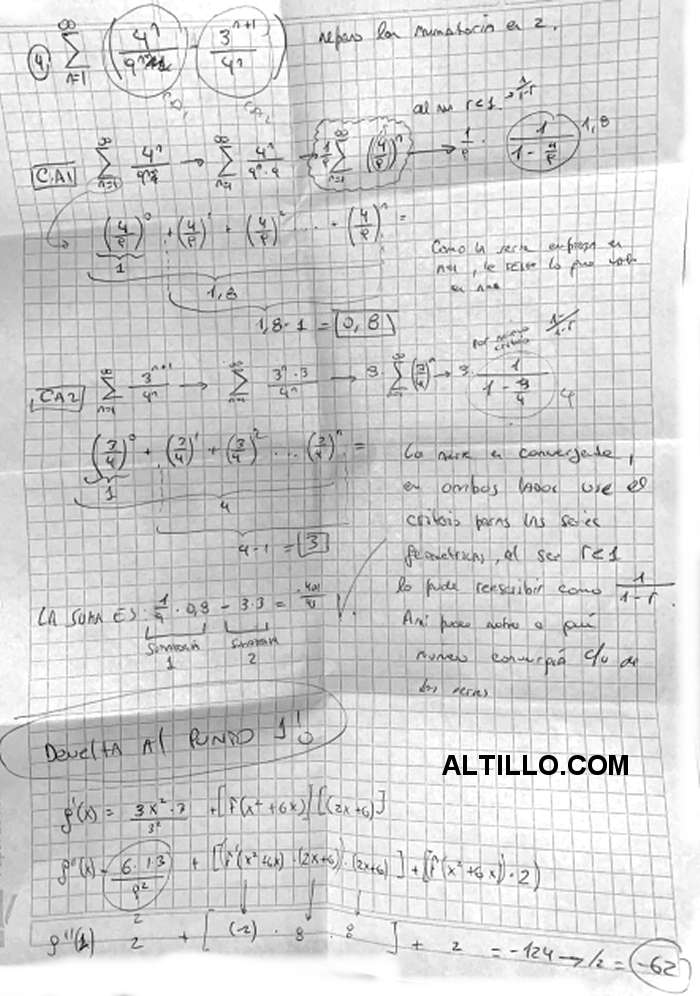 4. ∞∑n=1 (4ⁿ/9ⁿ⁺¹ - 3ⁿ⁺¹/4ⁿ) separo las sumatorias en 2.
CA1 CA2
al ser r<1 → 1/1-r
C.A1 ∞∑n=1 4ⁿ/9ⁿ⁺¹ → ∞∑n=1 4ⁿ/9ⁿ·9 → 1/9 ∞∑n=1 (4/9)ⁿ → 1/9 · 1/(1 - 4/9) 1,8
→ (4/9)⁰ + (4/9)¹ + (4/9)² ... + (4/9)ⁿ =
1
Como la serie empieza en
n=1, le resto lo que vale
en n=0
1,8
1,8-1 = 0,8
por mismo criterio 1/1-r
CA2 ∞∑n=1 3ⁿ⁺¹/4ⁿ → ∞∑n=1 3ⁿ·3/4ⁿ → 3·∞∑n=1 (3/4)ⁿ → 3· 1/(1 - 3/4) 4
(3/4)⁰ + (3/4)¹ + (3/4)² ... (3/4)ⁿ =
1
4
4-1 = 3
La serie es convergente,
en ambos lados use el
criterio para las series
geometricas, al ser r<1
lo pude reescribir como 1/1-r.
Asi puedo notar a qué
numero converge c/u de
las series
LA SUMA ES: 1/9 · 0,8 - 3·3 =
SUMATORIA 1 SUMATORIA 2
DEVUELTA AL PUNTO 1!
ALTILLO.COM
f'(x) = 3x²·2/3² + [f'(x²+6x)] [(2x+6)]
f''(x) = 6·13/9² + [f''(x²+6x)·(2x+6)·(2x+6)] + (f'(x²+6x)·2)
2
f''(1) 2 + [(-2) · 8 · 8] + 2 = -124 → /2 = -62